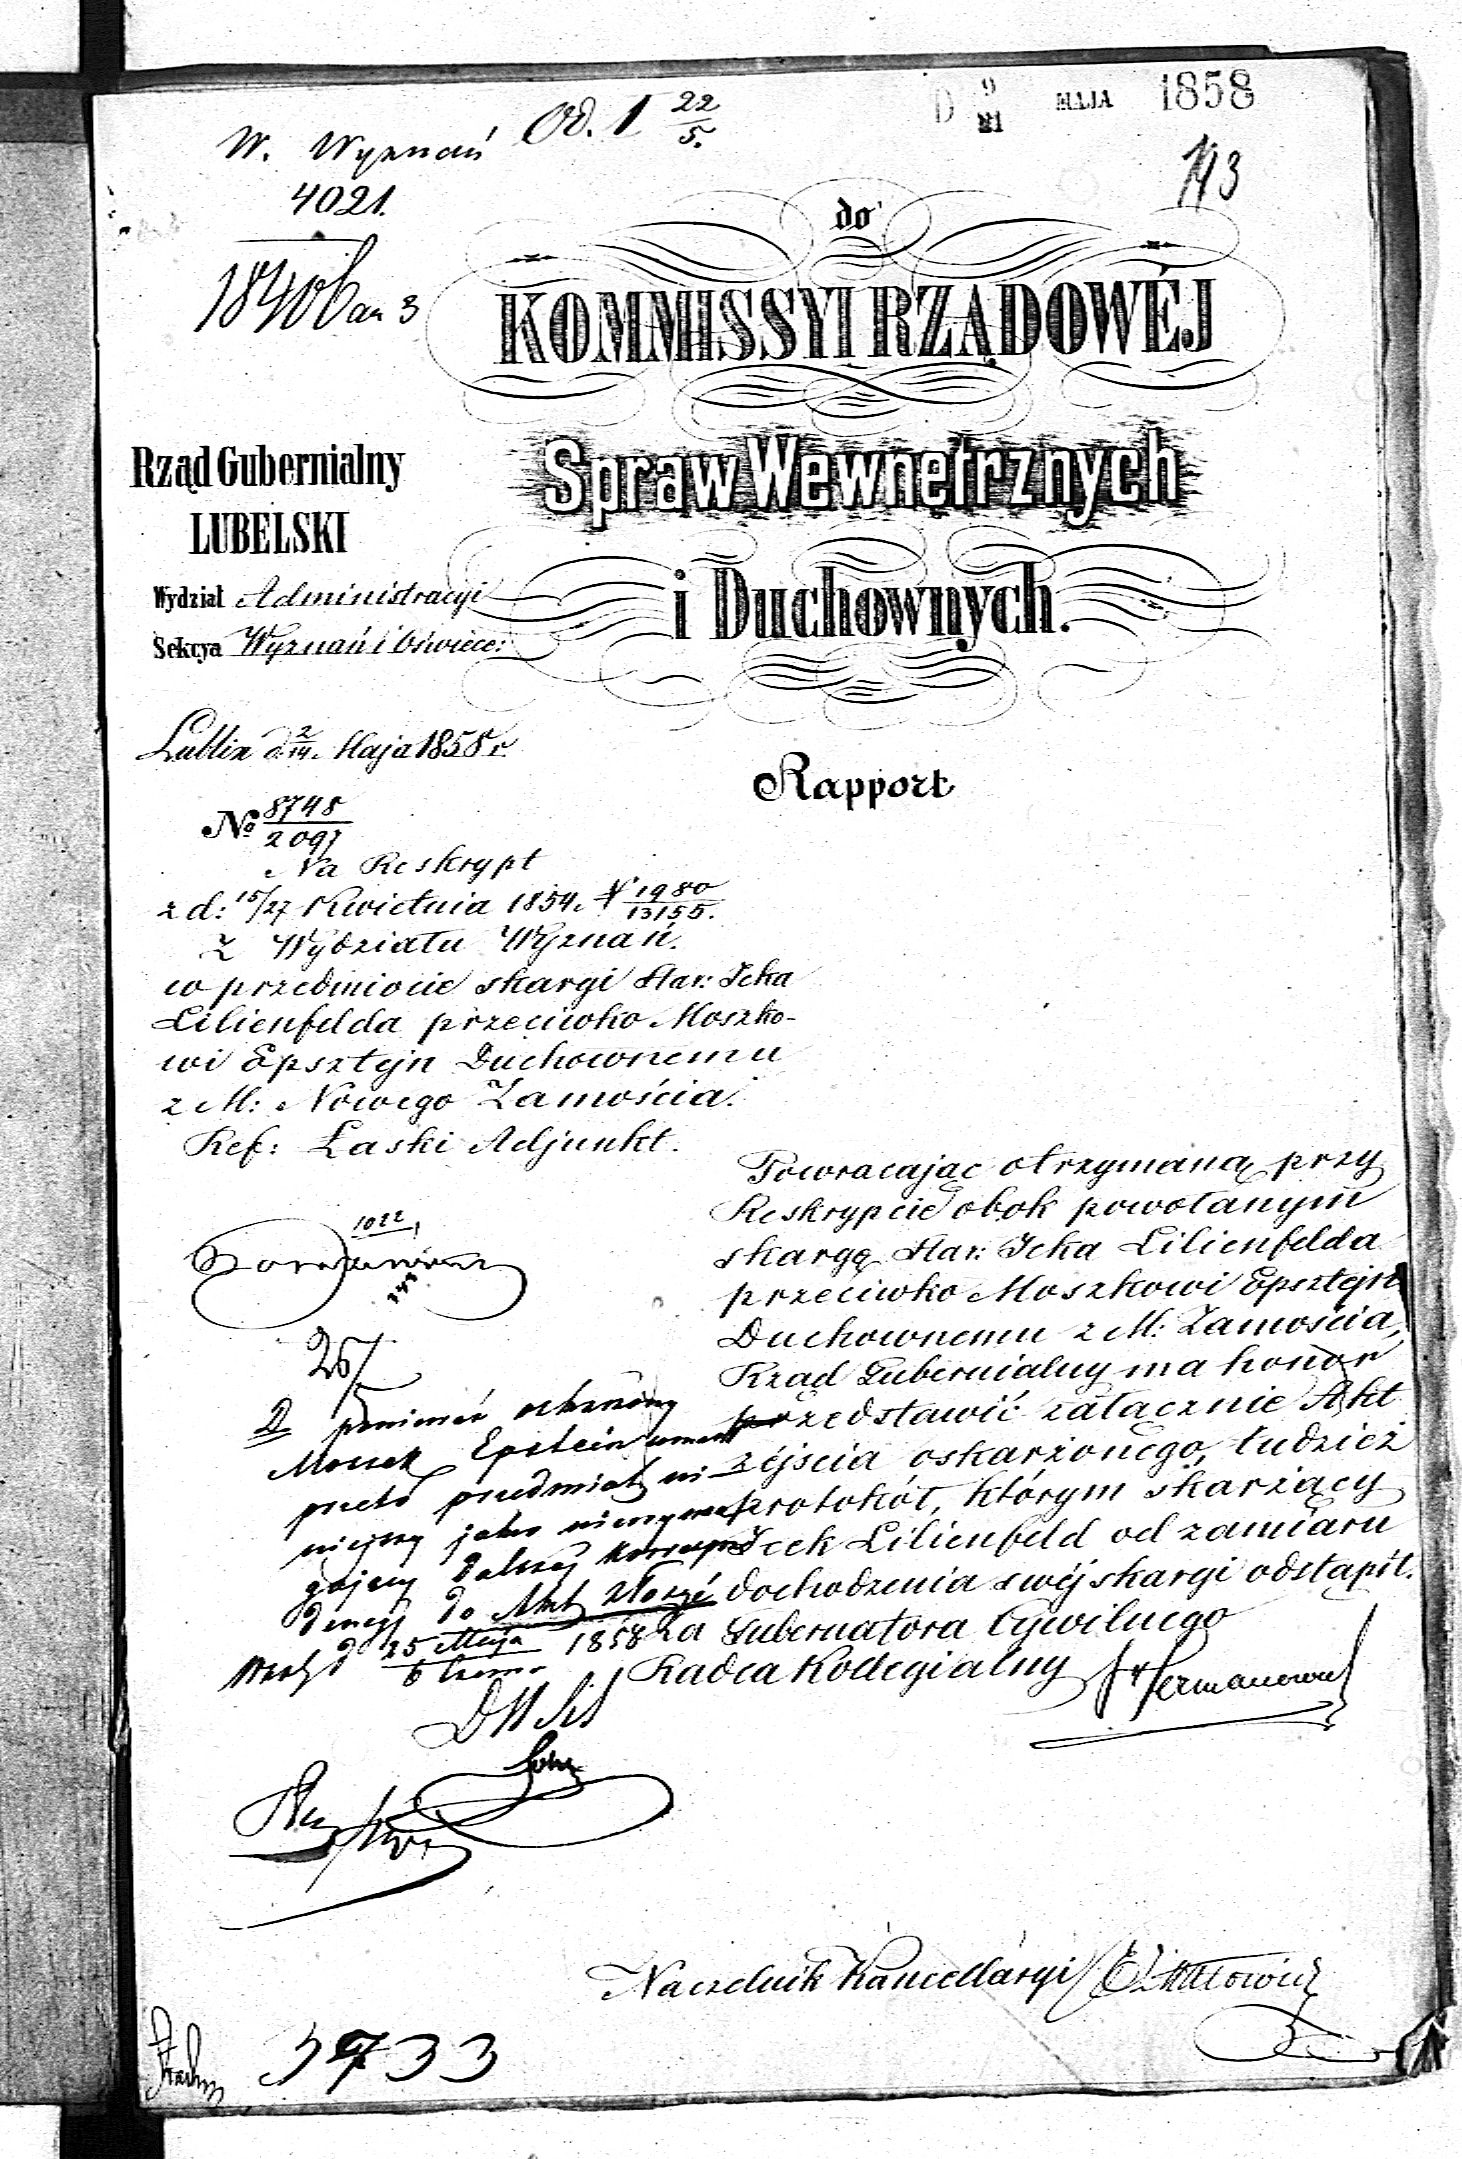 W. Wyznań
4021.
Od. 1 22/5.
D 9/21 MAJA 1858
113
18406 an 3
do
KOMMISSYI RZĄDOWÉJ
Spraw Wewnętrznych
i Duchownych.
Rząd Gubernialny
LUBELSKI
Wydział Administracyi
Sekcya Wyznań i Oświece:
Lublin d. 2/14. Maja 1858 r.
Rapport
No 8748/2097
Na Reskrypt
z d: 15/27 Kwietnia 1854. N 1980/13155.
Z Wydziału Wyznań.
w przedmiocie skargi Star: Icka
Lilienfelda przeciwko Moszko-
wi Epsztejn Duchownemu
z M: Nowego Zamościa.
Ref: Łaski Adjunkt.
Powracając otrzymaną przy
Reskrypcie obok powołanym
skargę Star: Icka Lilienfelda
przeciwko Moszkowi Epsztejn
Duchownemu z M: Zamościa,
Rząd Gubernialny ma honor
przedstawić załącznie Akt
zéjscia oskarżonego, tudzież
protokół, którym skarżący
Icek Lilienfeld od zamiaru
dochodzenia swéj skargi odstąpił.
Za Gubernatora Cywilnego
Radca Kollegialny Hermanowski
1022
26/
D ponieważ oskarżony
Moszek Epstein umarł
przeto przedmiot ni-
niejszy jako niewyma-
gający dalszej korrespon-
dencyi do Akt złożyć
d 25 Maja/6 Czerw. 1858
Naczelnik Kancellaryi
5733